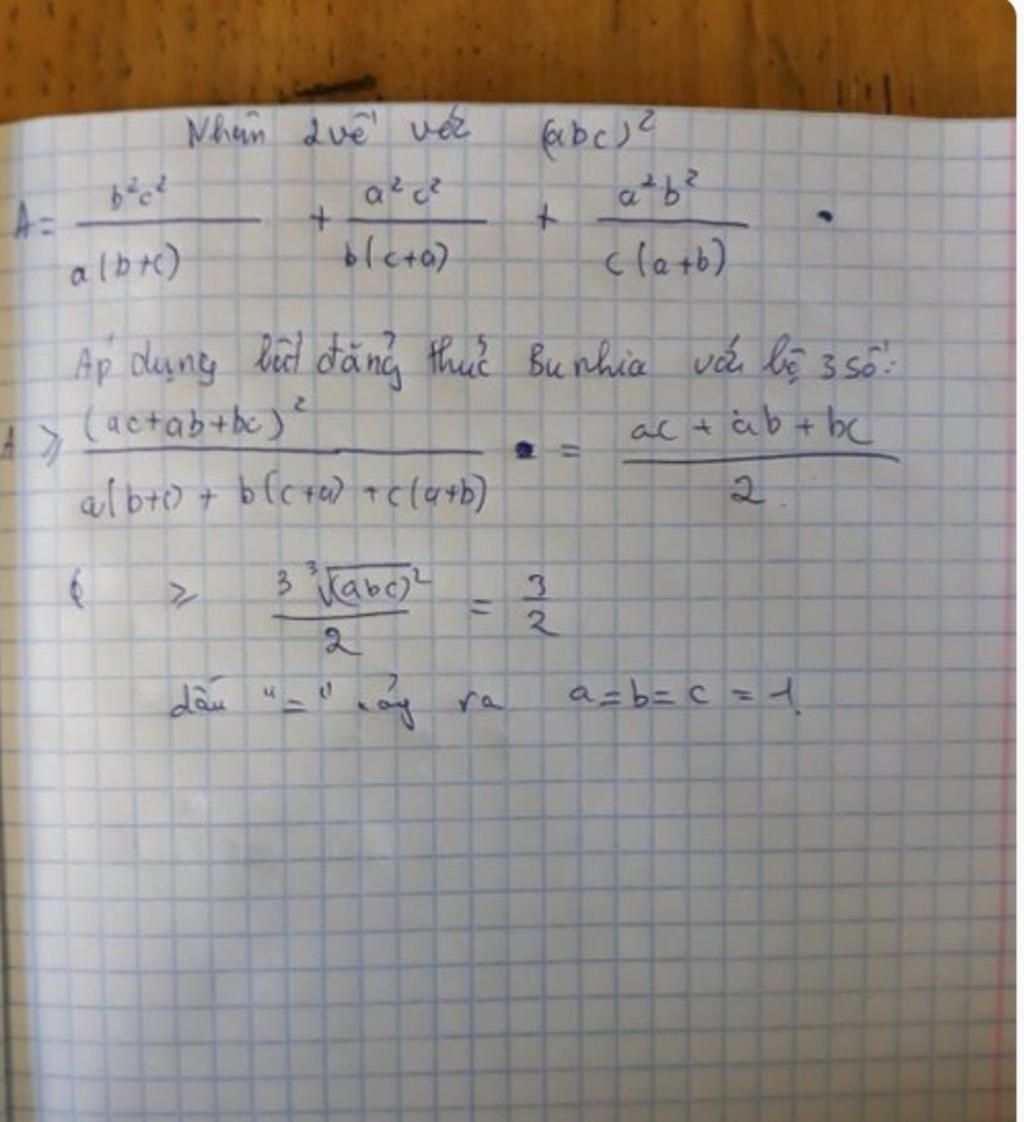 Nhân 2 vế với (abc)²
A = b²c²/a(b+c) + a²c²/b(c+a) + a²b²/c(a+b)
Áp dụng bất đẳng thức Bunhia với bộ 3 số:
A ≥ (ac+ab+bc)²/a(b+c) + b(c+a) + c(a+b) = ac + ab + bc/2
≥ 3∛(abc)²/2 = 3/2
dấu "=" xảy ra a=b=c=1